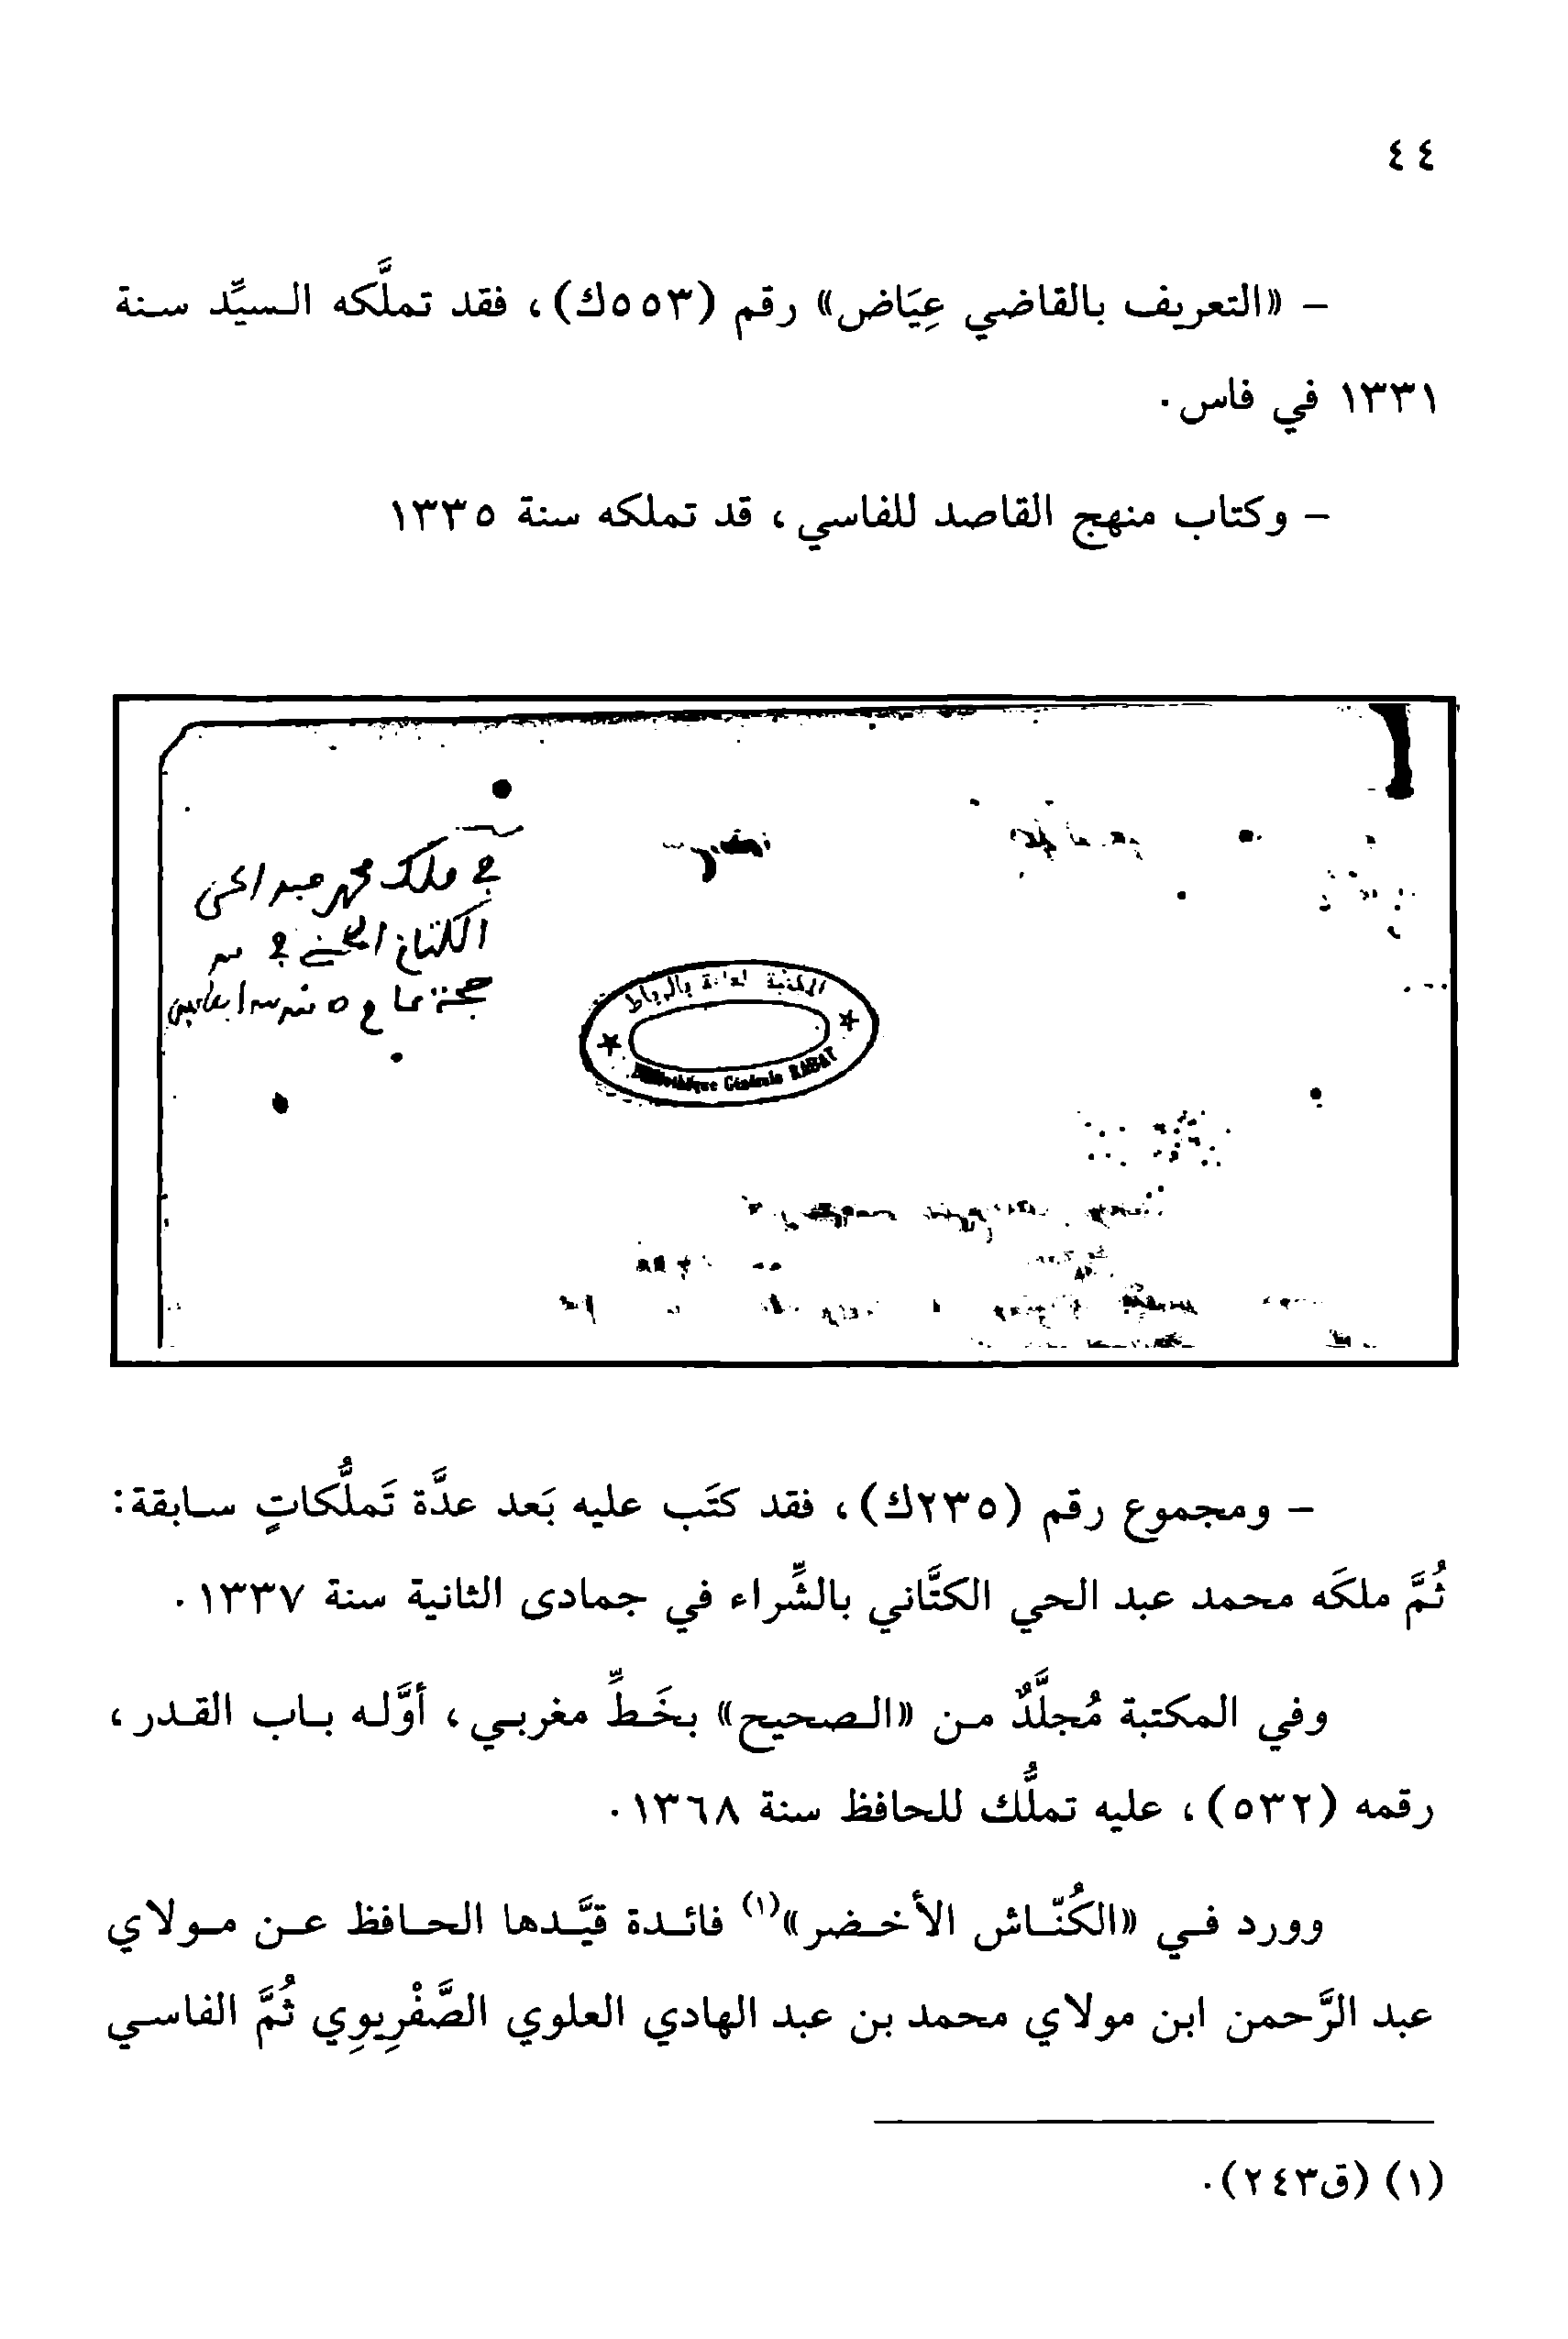 ٤٤
- «التعريف بالقاضي عِيَاض» رقم (٥٥٣ك)، فقد تملَّكه السيِّد سنة
١٣٣١ في فاس.
- وكتاب منهج القاصد للفاسي، قد تملكه سنة ١٣٣٥
في ملك محمد عبد الحي
الكتاني الحسني في
المكتبة العامة بالرباط
Bibliothèque Générale RABAT
- ومجموع رقم (٢٣٥ك)، فقد كتَب عليه بَعد عدَّة تَملُّكاتٍ سابقة:
ثُمَّ ملكَه محمد عبد الحي الكتَّاني بالشِّراء في جمادى الثانية سنة ١٣٣٧.
وفي المكتبة مُجلَّدٌ من «الصحيح» بخَطِّ مغربي، أوَّله باب القدر،
رقمه (٥٣٢)، عليه تملُّك للحافظ سنة ١٣٦٨.
وورد في «الكُنّاش الأخضر»(١) فائدة قيَّدها الحافظ عن مولاي
عبد الرَّحمن ابن مولاي محمد بن عبد الهادي العلوي الصَّفْرِيوِي ثُمَّ الفاسي
(١) (ق٢٤٣).